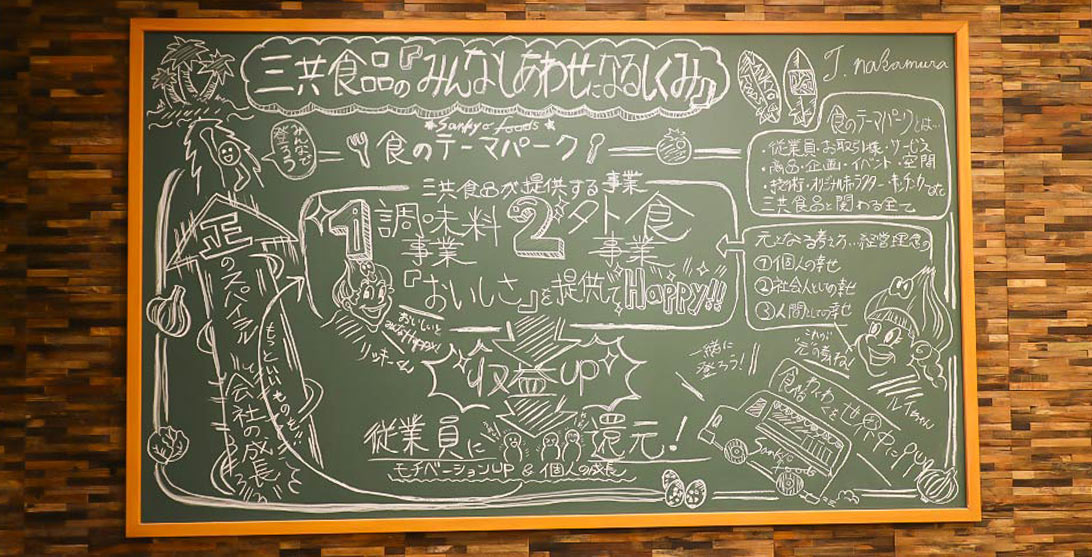 三共食品の『みんなしあわせになるしくみ』
T. nakamura
Sankyo foods
食のテーマパーク
みんなで
登ろう
食のテーマパークとは…
・従業員・お取引様・サービス
・商品・企画・イベント・空間
・オリジナルキャラクター・キッチンカーetc
三共食品と関わる全て
三共食品が提供する事業
1 調味料事業
2 外食事業
『おいしさ』を提供してHappy!!
元となる考え方…経営理念の
①個人の幸せ
②社会人としての幸せ
③人間としての幸せ
これが
元の素ね!
ルイちゃん
おいしいと
みなHappy!
リッキーくん
正のスパイラル
会社の成長
もっといいものを
収益UP
従業員に還元!
モチベーションUP & 個人の成長
一緒に
登ろう!
食督わくわく
世の中に
Sankyo
foods